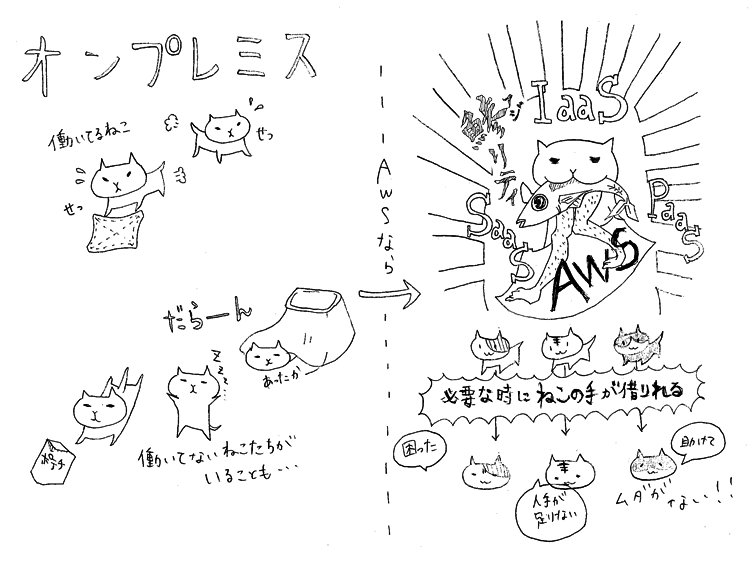 オンプレミス
働いてるねこ
せっ
せっ
だらーん
あったか
zzz...
ポテチ
働いてないねこたちが
いることも・・・
AWSなら
IaaS
アジリティ
SaaS
PaaS
AWS
必要な時にねこの手が借りれる
困った
人手が
足りない
助けて
ムダがない!!